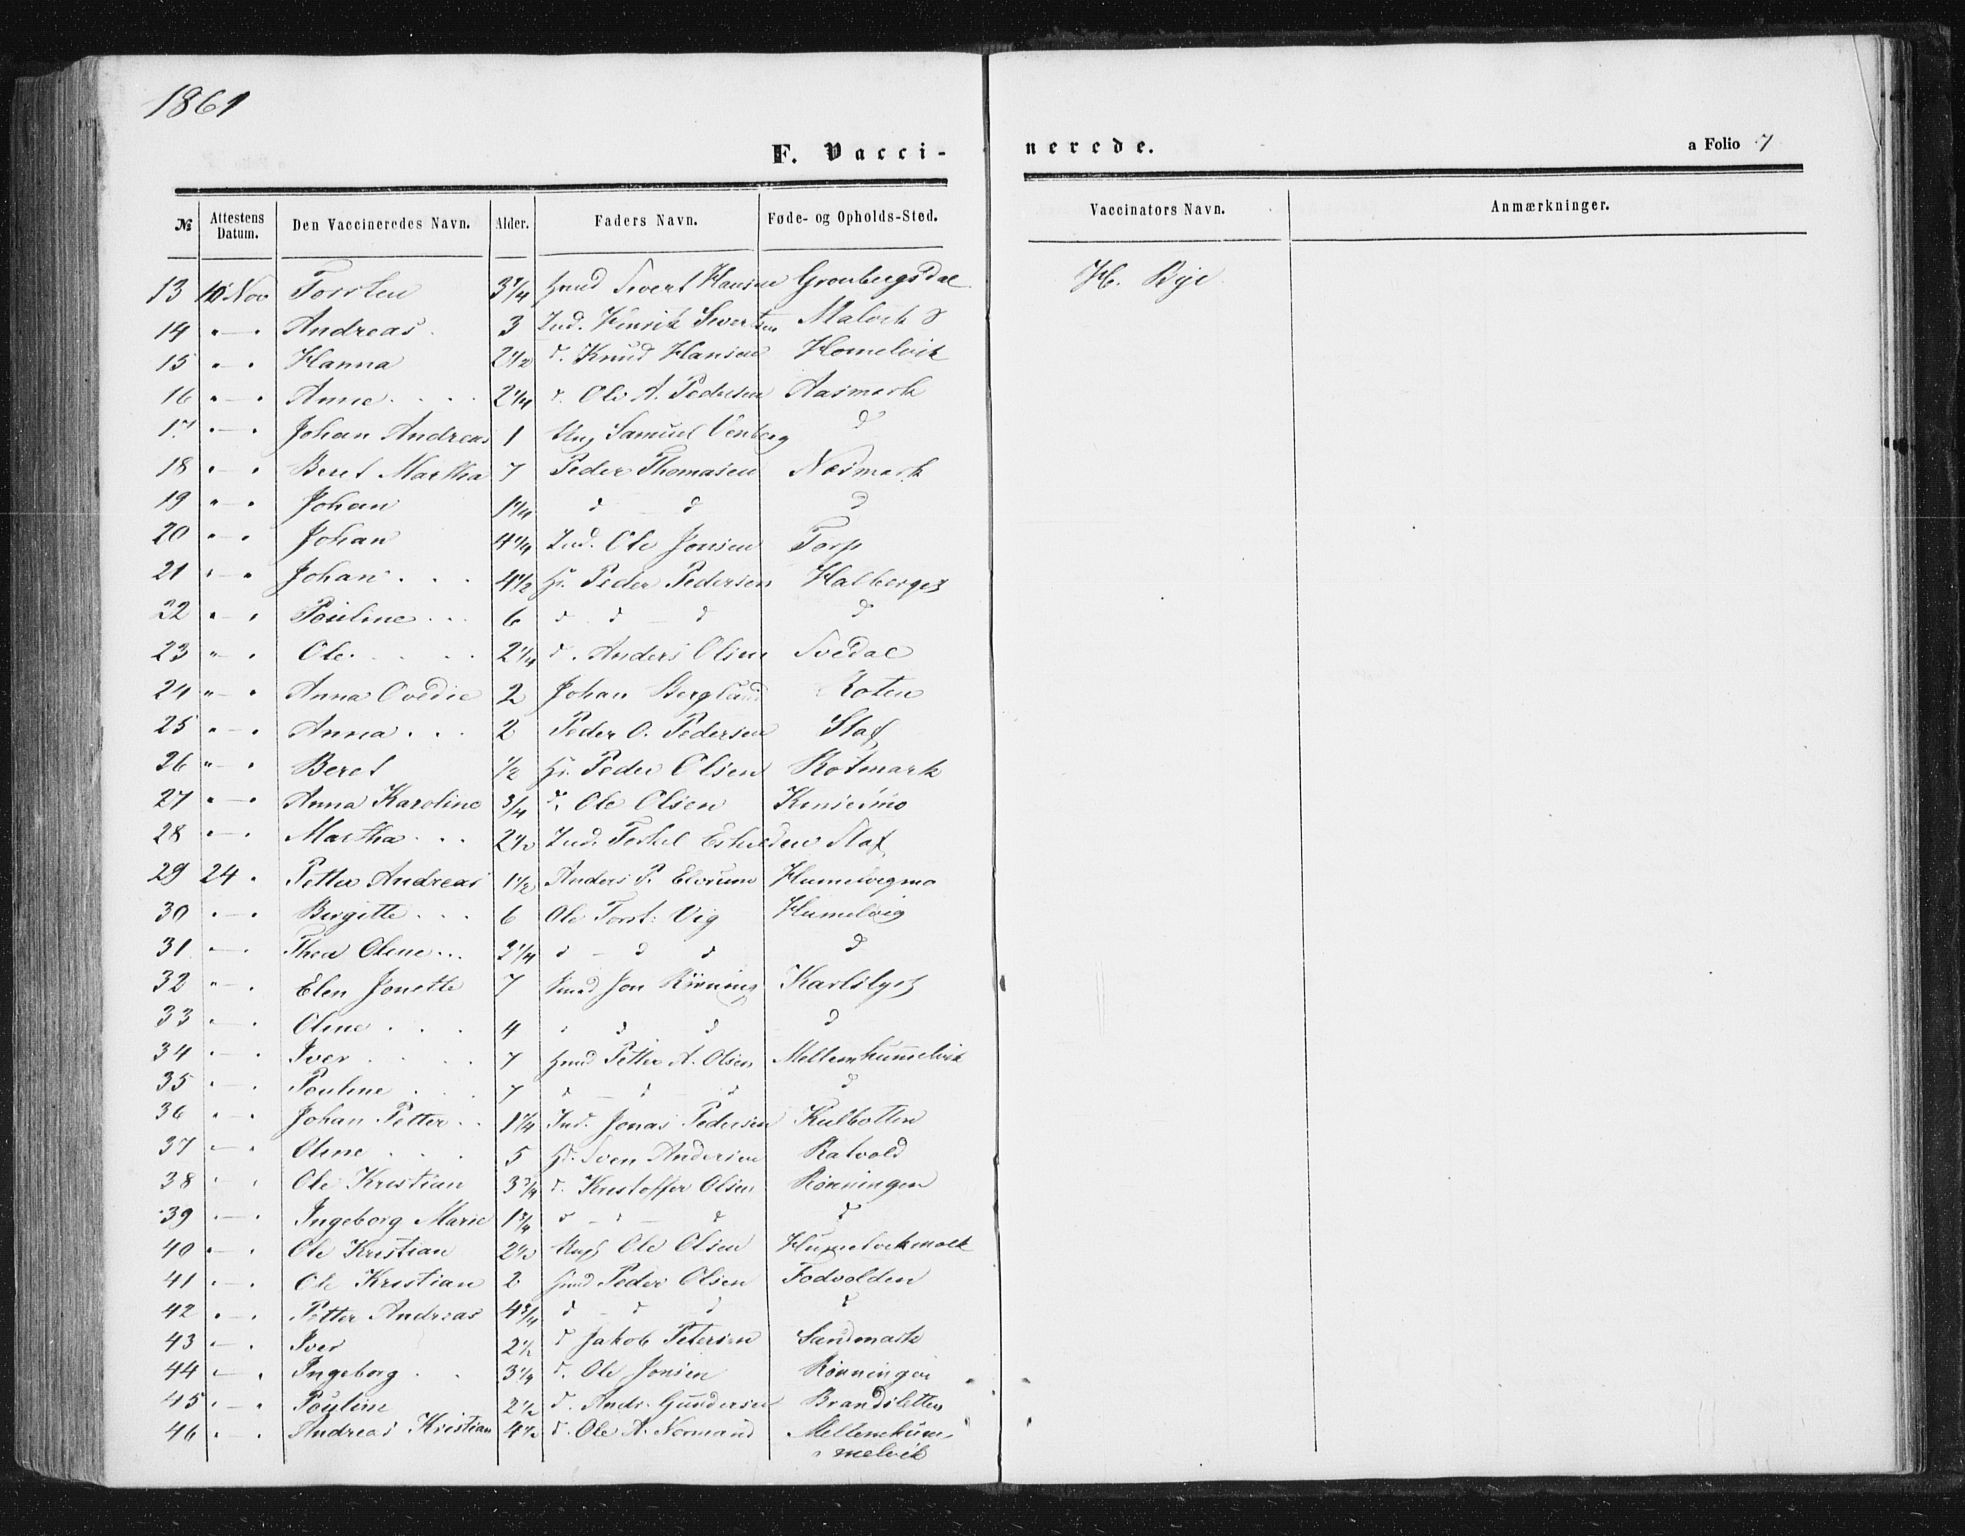 1861
F. Vacci- nerede. a Folio 7
№ Attestens Datum. Den Vaccineredes Navn. Alder. Faders Navn. Føde- og Opholds-Sted. Vaccinators Navn. Anmærkninger.
13 10 Nov Torsten 3 3/4 Hmd Sivert Hansen Gronbergsdal H. Bye
14 " — " Andreas 3 Ind. Henrik Sivertsen Malvik
15 " — " Hanna 2 1/2 d. Knud Hansen Homelvik
16 " — " Anne 2 1/4 d. Ole A. Pedersen Aasmark
17 " — " Johan Andreas 1 Ung Samuel Venberg d
18 " — " Beret Martha 7 Peder Thomasen Næsmark
19 " — " Johan 1 1/4 d — d d
20 " — " Johan 4 1/4 Ind. Ole Jonsen Torp
21 " — " Johan 4 1/2 Hr. Peder Pedersen Halberget
22 " — " Pauline 6 d d — d d
23 " — " Ole 2 1/4 d. Anders Olsen Svedal
24 " — " Anna Ovedie 2 Johan Berglund Roten
25 " — " Anna 2 Peder O. Pedersen Staf
26 " — " Beret 1/2 Hr. Peder Olsen Rotmark
27 " — " Anna Karoline 3/4 d. Ole Olsen
28 " — " Martha 2 1/2 Ind. Terkel Staf
29 24 " Petter Andreas 1 1/2 Anders P. Elvrum Humelvigmo
30 " — " Birgitte 6 Ole Torst: Vig Humelvig
31 " — " Thea Oline 2 1/4 d — d d d
32 " — " Elen Jonette 7 Jon Rönning Karlslyst
33 " — " Oline 4 d d d
34 " — " Iver 7 Hmd Petter A. Olsen Mellemhummelvik
35 " — " Pauline 7 d — d — d d
36 " — " Johan Petter 1 1/4 Ind. Jonas Pedersen Kulbotten
37 " — " Oline 5 Hr. Sven Andersen Ratvold
38 " — " Ole Kristian 3 3/4 d. Kristoffer Olsen Rönningen
39 " — " Ingeborg Marie 1 3/4 d — d — d d
40 " — " Ole Kristian 2 1/2 Ung Ole Olsen
41 " — " Ole Kristian 2 Hmd Peder Olsen Fodvolden
42 " — " Petter Andreas 4 3/4 d — d — d d
43 " — " Iver 2 1/2 d Jakob Petersen Sandmark
44 " — " Ingeborg 3 1/4 d. Ole Jonsen Rönningen
45 " — " Pauline 2 1/2 d. Andr. Gundersen Brandsletten
46 " — " Andreas Kristian 4 1/2 d. Ole A. Normand Mellemhum-
melvik